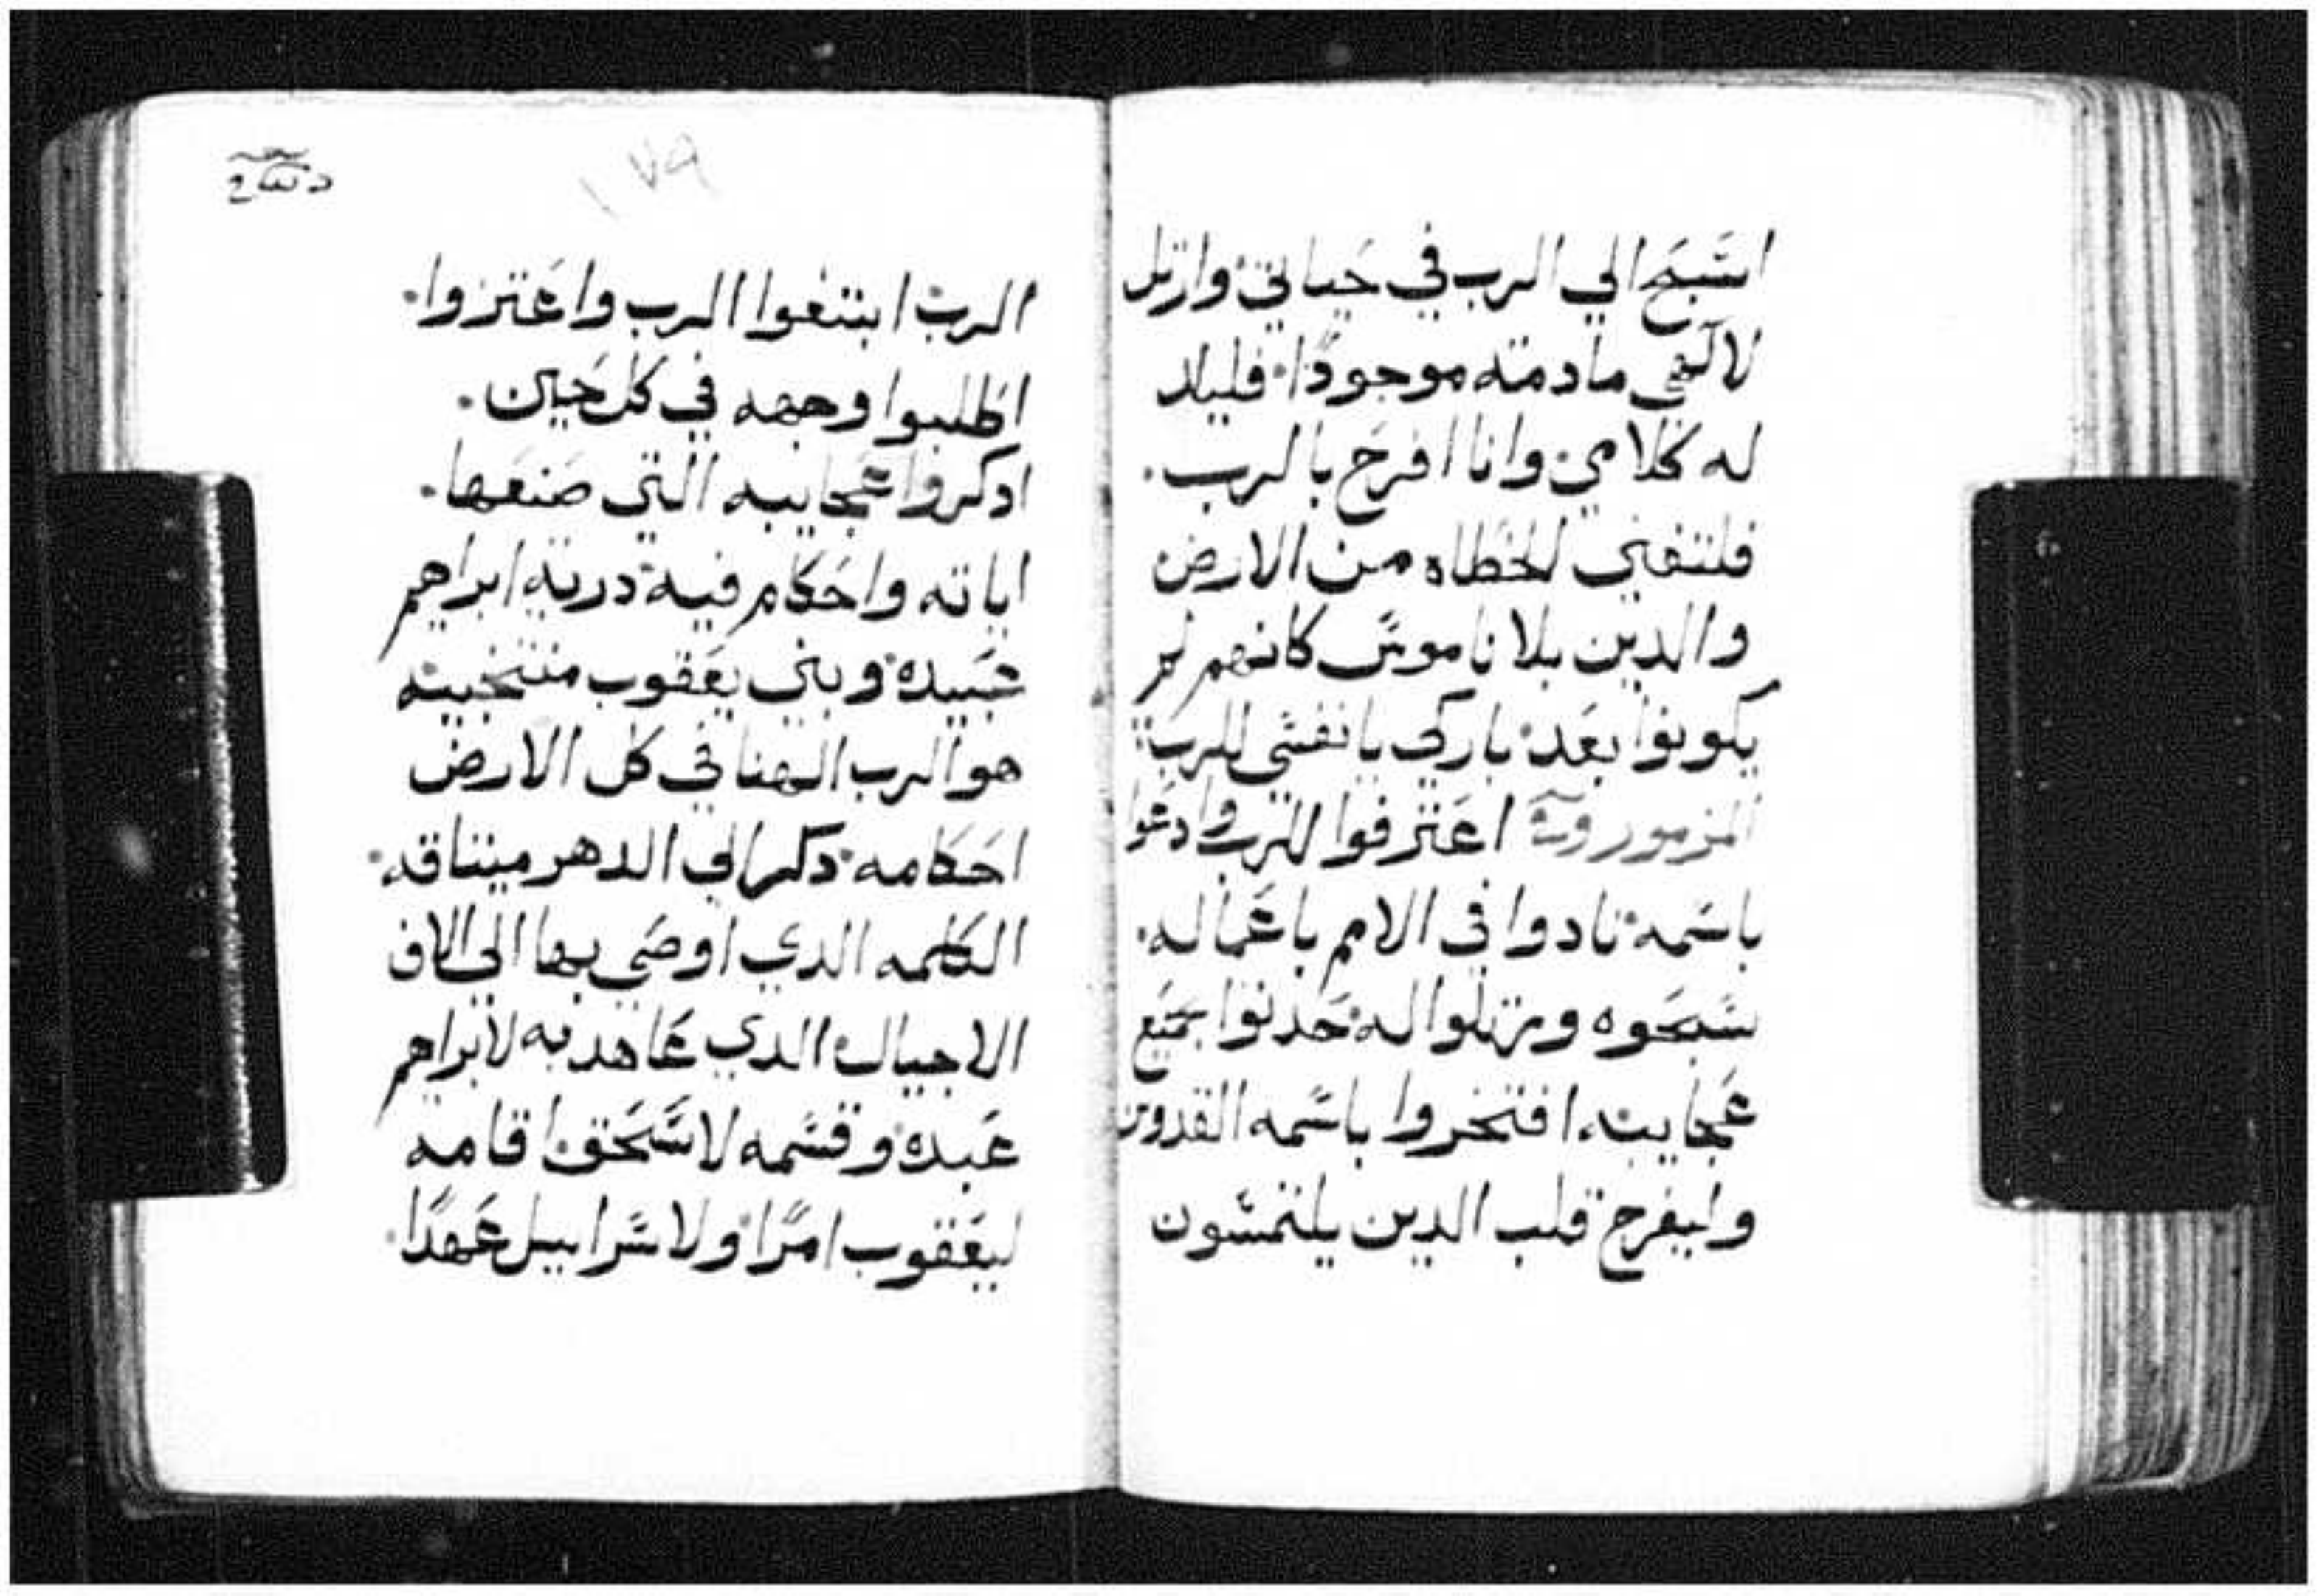 اسَبحَ الي الرب في حَياتي وارتل
لالهي مادمته موجودًا فليلد
له كلامي وانا افرح بالرب.
فلتفني الخطاه من الارض
والدين بلا ناموسَ كانهم لم
يكونوا بعَد باركي يا نفسَي للرب
المزمور اعَترفوا للرب وادعَوا
باسَمه نادوا في الامم باعَماله.
سَبحَوه ورتلوا له حَدثوا بجميَع
عَجايبه افتخروا باسَمه القدوس
وليفرح قلب الدين يلتمسَون
١٧٩
الرب ابتغوا الرب واعَتزوا.
اطلبوا وجهه في كل حَين.
ادكروا عَجايبه التي صَنعَها.
اياته واحَكام فيه درية ابراهيم
عَبيده وبني يعَقوب منتخبيه
هو الرب الهنا في كل الارض
احَكامه دكر الي الدهر ميتاقه.
الكلمه الدي اوصَي بها الي الاف
الاجيال الدي عَاهد به لابراهيم
عَبده وقسَمه لاسَحَق اقامه
ليعَقوب امرًا ولاسَراييل عَهدًا.